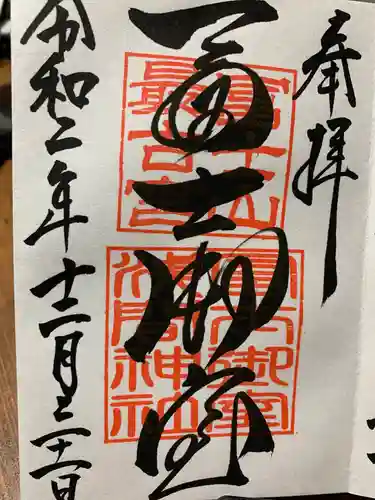 奉拝
富士山
最古宮
冨士御室
冨士御室
浅間神社
令和二年十二月二十一日